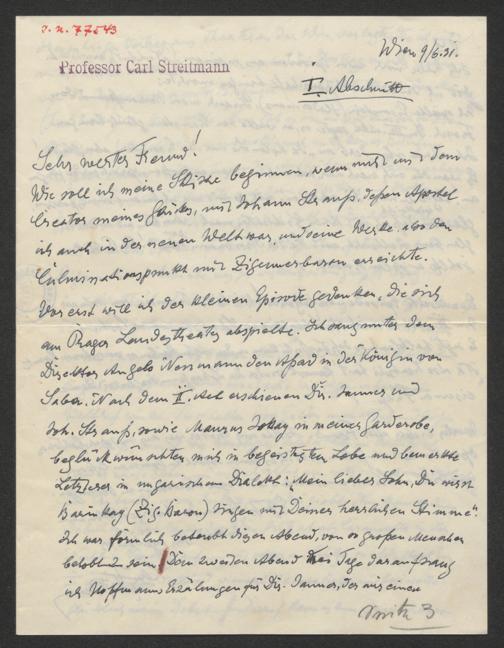 J. N. 77543
Wien 9/6.31.
Professor Carl Streitmann
I. Abschnitt
Sehr werter Freund!
Wie soll ich meine Skizze beginnen, wenn nicht mit dem
Creator meines Glücks, mit Johann Strauß, dessen Apostel
ich auch in der neuen Welt war, und seine Werke, also den
Culminationspunkt mit Zigeunerbaron erreichte.
Vorerst will ich der kleinen Episode gedenken, die sich
am Prager Landestheater abspielte. Ich sang unter dem
Direktor Angelo Neumann den Assad in der Königin von
Saba. Nach dem II. Act erschienen Dir. Jauner und
Joh. Strauß, sowie Maurus Jokay in meiner Garderobe,
beglückwünschten mich in begeistertem Lobe und bemerkte
Letzterer in ungarischem Dialekt: "Mein lieber Sohn, Du wirst
Barinkay (Zig. Baron) singen mit Deiner herrlichen Stimme".
Ich war förmlich betäubt diesen Abend, von so großen Menschen
belobt zu sein. Den zweiten Abend drei Tage darauf sang
ich Hoffmanns Erzählungen für Dir. Jauner, der mir einen